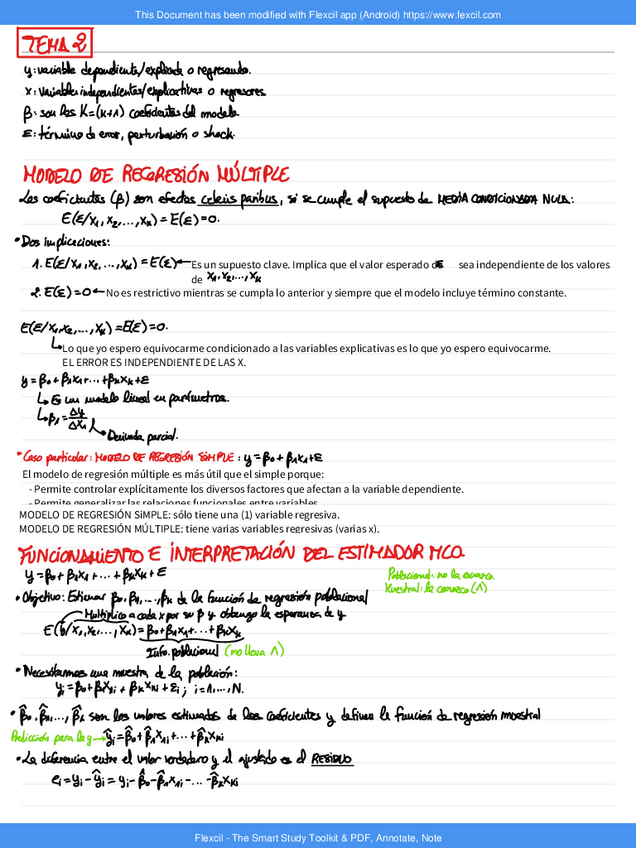 This Document has been modified with Flexcil app (Android) https://www.fexcil.com
TEMA 2
y: variable dependiente/explicada o regresando.
x: variables independientes/explicativas o regresores
β: son los K=(k+1) coeficientes del modelo.
ε: término de error, perturbación o shock.
MODELO DE REGRESIÓN MÚLTIPLE
Los coeficientes (β) son efectos ceteris paribus, si se cumple el supuesto de MEDIA CONDICIONADA NULA:
E(ε/x₁, x₂, ..., xₖ) = E(ε) = 0.
• Dos implicaciones:
1. E(ε/x₁, x₂, ..., xₖ) = E(ε) ← Es un supuesto clave. Implica que el valor esperado de ε sea independiente de los valores
de x₁, x₂, ..., xₖ
2. E(ε) = 0 ← No es restrictivo mientras se cumpla lo anterior y siempre que el modelo incluye término constante.
E(ε/x₁, x₂, ..., xₖ) = E(ε) = 0.
Lo que yo espero equivocarme condicionado a las variables explicativas es lo que yo espero equivocarme.
EL ERROR ES INDEPENDIENTE DE LAS X.
y = β₀ + β₁x₁ + ... + βₖxₖ + ε
↳ Es un modelo lineal en parámetros.
↳ β₁ = Δy/Δx₁
↳ Derivada parcial.
• Caso particular: MODELO DE REGRESIÓN SIMPLE: y = β₀ + β₁x₁ + ε
El modelo de regresión múltiple es más útil que el simple porque:
- Permite controlar explícitamente los diversos factores que afectan a la variable dependiente.
- Permite generalizar las relaciones funcionales entre variables
MODELO DE REGRESIÓN SiMPLE: sólo tiene una (1) variable regresiva.
MODELO DE REGRESIÓN MÚLTIPLE: tiene varias variables regresivas (varias x).
FUNCIONAMIENTO E INTERPRETACIÓN DEL ESTIMADOR MCO
y = β₀ + β₁x₁ + ... + βₖxₖ + ε
Poblacional: no la conozco
Muestral: la conozco (∧)
• Objetivo: Estimar β₀, β₁, ..., βₖ de la función de regresión poblacional
Multiplico a cada x por su β y obtengo la esperanza de y
E(y/x₁, x₂, ..., xₖ) = β₀ + β₁x₁ + ... + βₖxₖ
Info. poblacional (no lleva ∧)
• Necesitamos una muestra de la población:
yᵢ = β₀ + β₁x₁ᵢ + βₖxₖᵢ + εᵢ ; i = 1, ..., N.
• β̂₀, β̂₁, ..., β̂ₖ son los valores estimados de los coeficientes y definen la función de regresión muestral
Predicción para la y → ŷᵢ = β̂₀ + β̂₁x₁ᵢ + ... + β̂ₖxₖᵢ
• La diferencia entre el valor verdadero y el ajustado es el RESIDUO
eᵢ = yᵢ - ŷᵢ = yᵢ - β̂₀ - β̂₁x₁ᵢ - ... - β̂ₖxₖᵢ
Flexcil - The Smart Study Toolkit & PDF, Annotate, Note